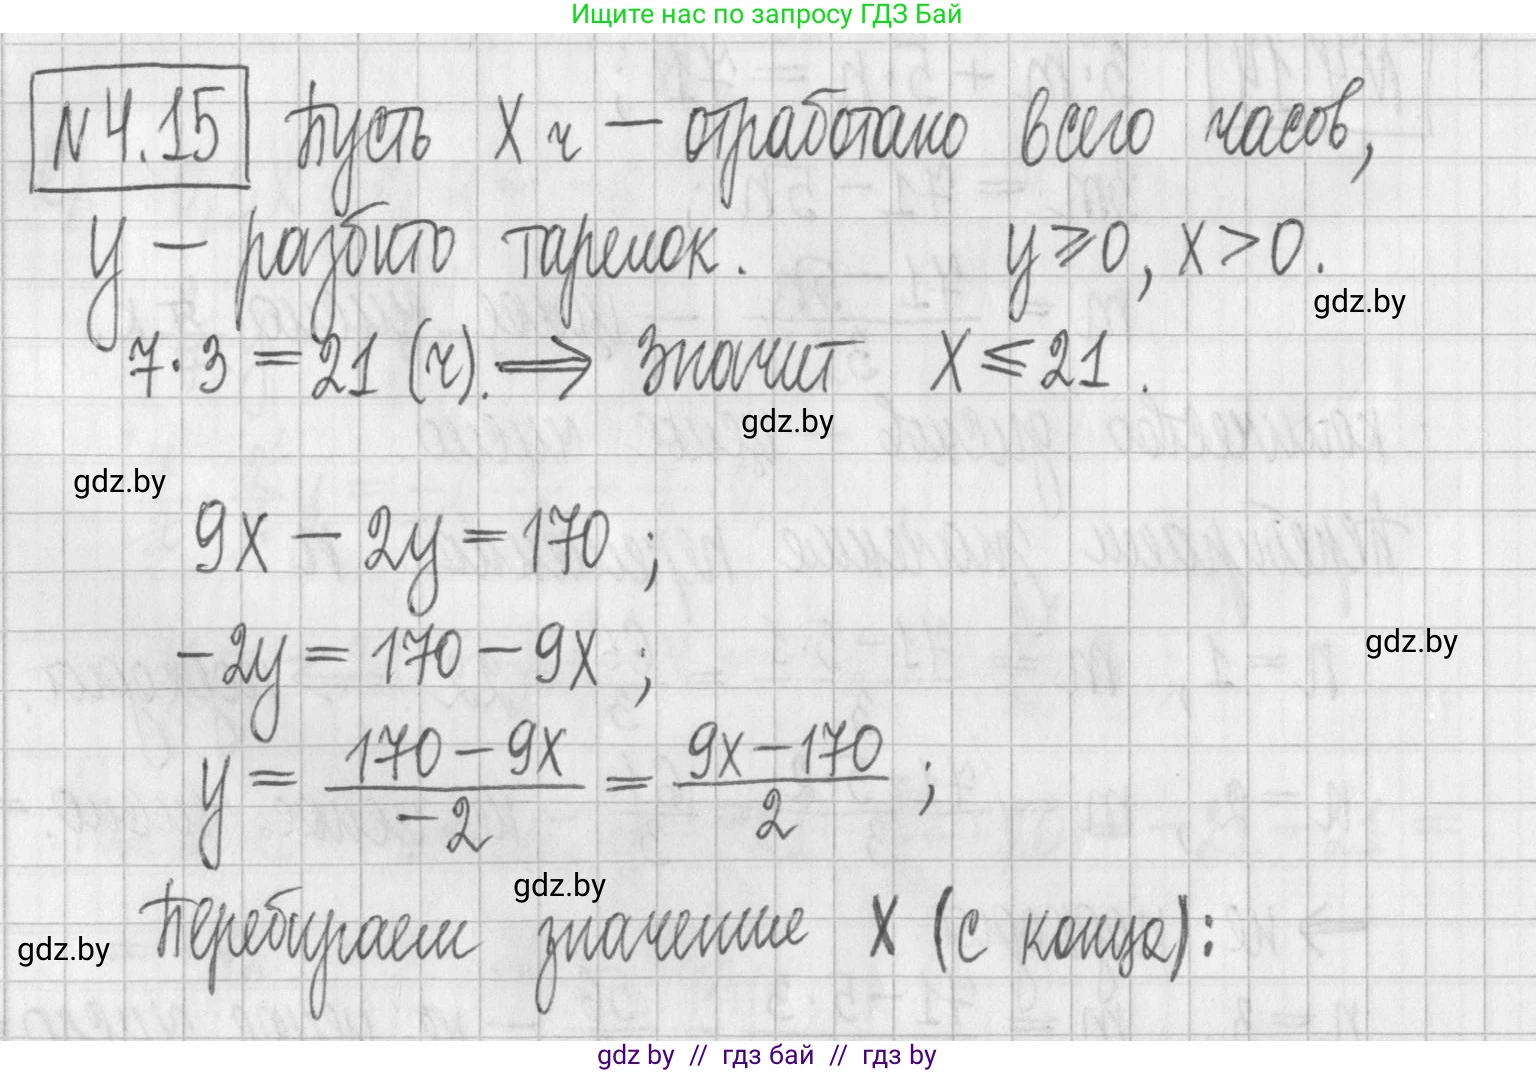 Ищите нас по запросу ГДЗ Бай
№4.15 Пусть X ч — отработано всего часов,
y — разбито тарелок. y ⩾ 0, x > 0.
gdz.by
7·3 = 21 (ч). ⟹ значит X ⩽ 21.
gdz.by
gdz.by
9x − 2y = 170;
−2y = 170 − 9x;
gdz.by
y = (170 − 9x)/(−2) = (9x − 170)/2;
gdz.by
Перебираем значение X (с конца):
gdz.by
gdz.by // гдз бай // гдз by